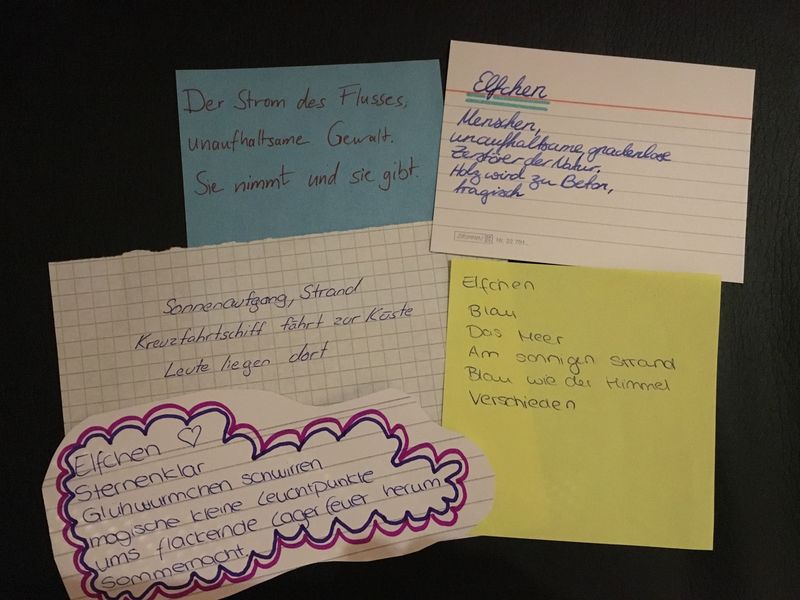 Der Strom des Flusses,
unaufhaltsame Gewalt.
Sie nimmt und sie gibt.
Elfchen
Menschen,
unaufhaltsame, gnadenlose
Zerstörer der Natur.
Holz wird zu Beton,
tragisch
Sonnenaufgang, Strand
Kreuzfahrtschiff fährt zur Küste
Leute liegen dort
Elfchen
Blau
Das Meer
Am sonnigen Strand
Blau wie der Himmel
Verschieden
Elfchen
Sternenklar
Glühwürmchen schwirren
magische kleine Leuchtpunkte
ums flackernde Lagerfeuer herum
Sommernacht.